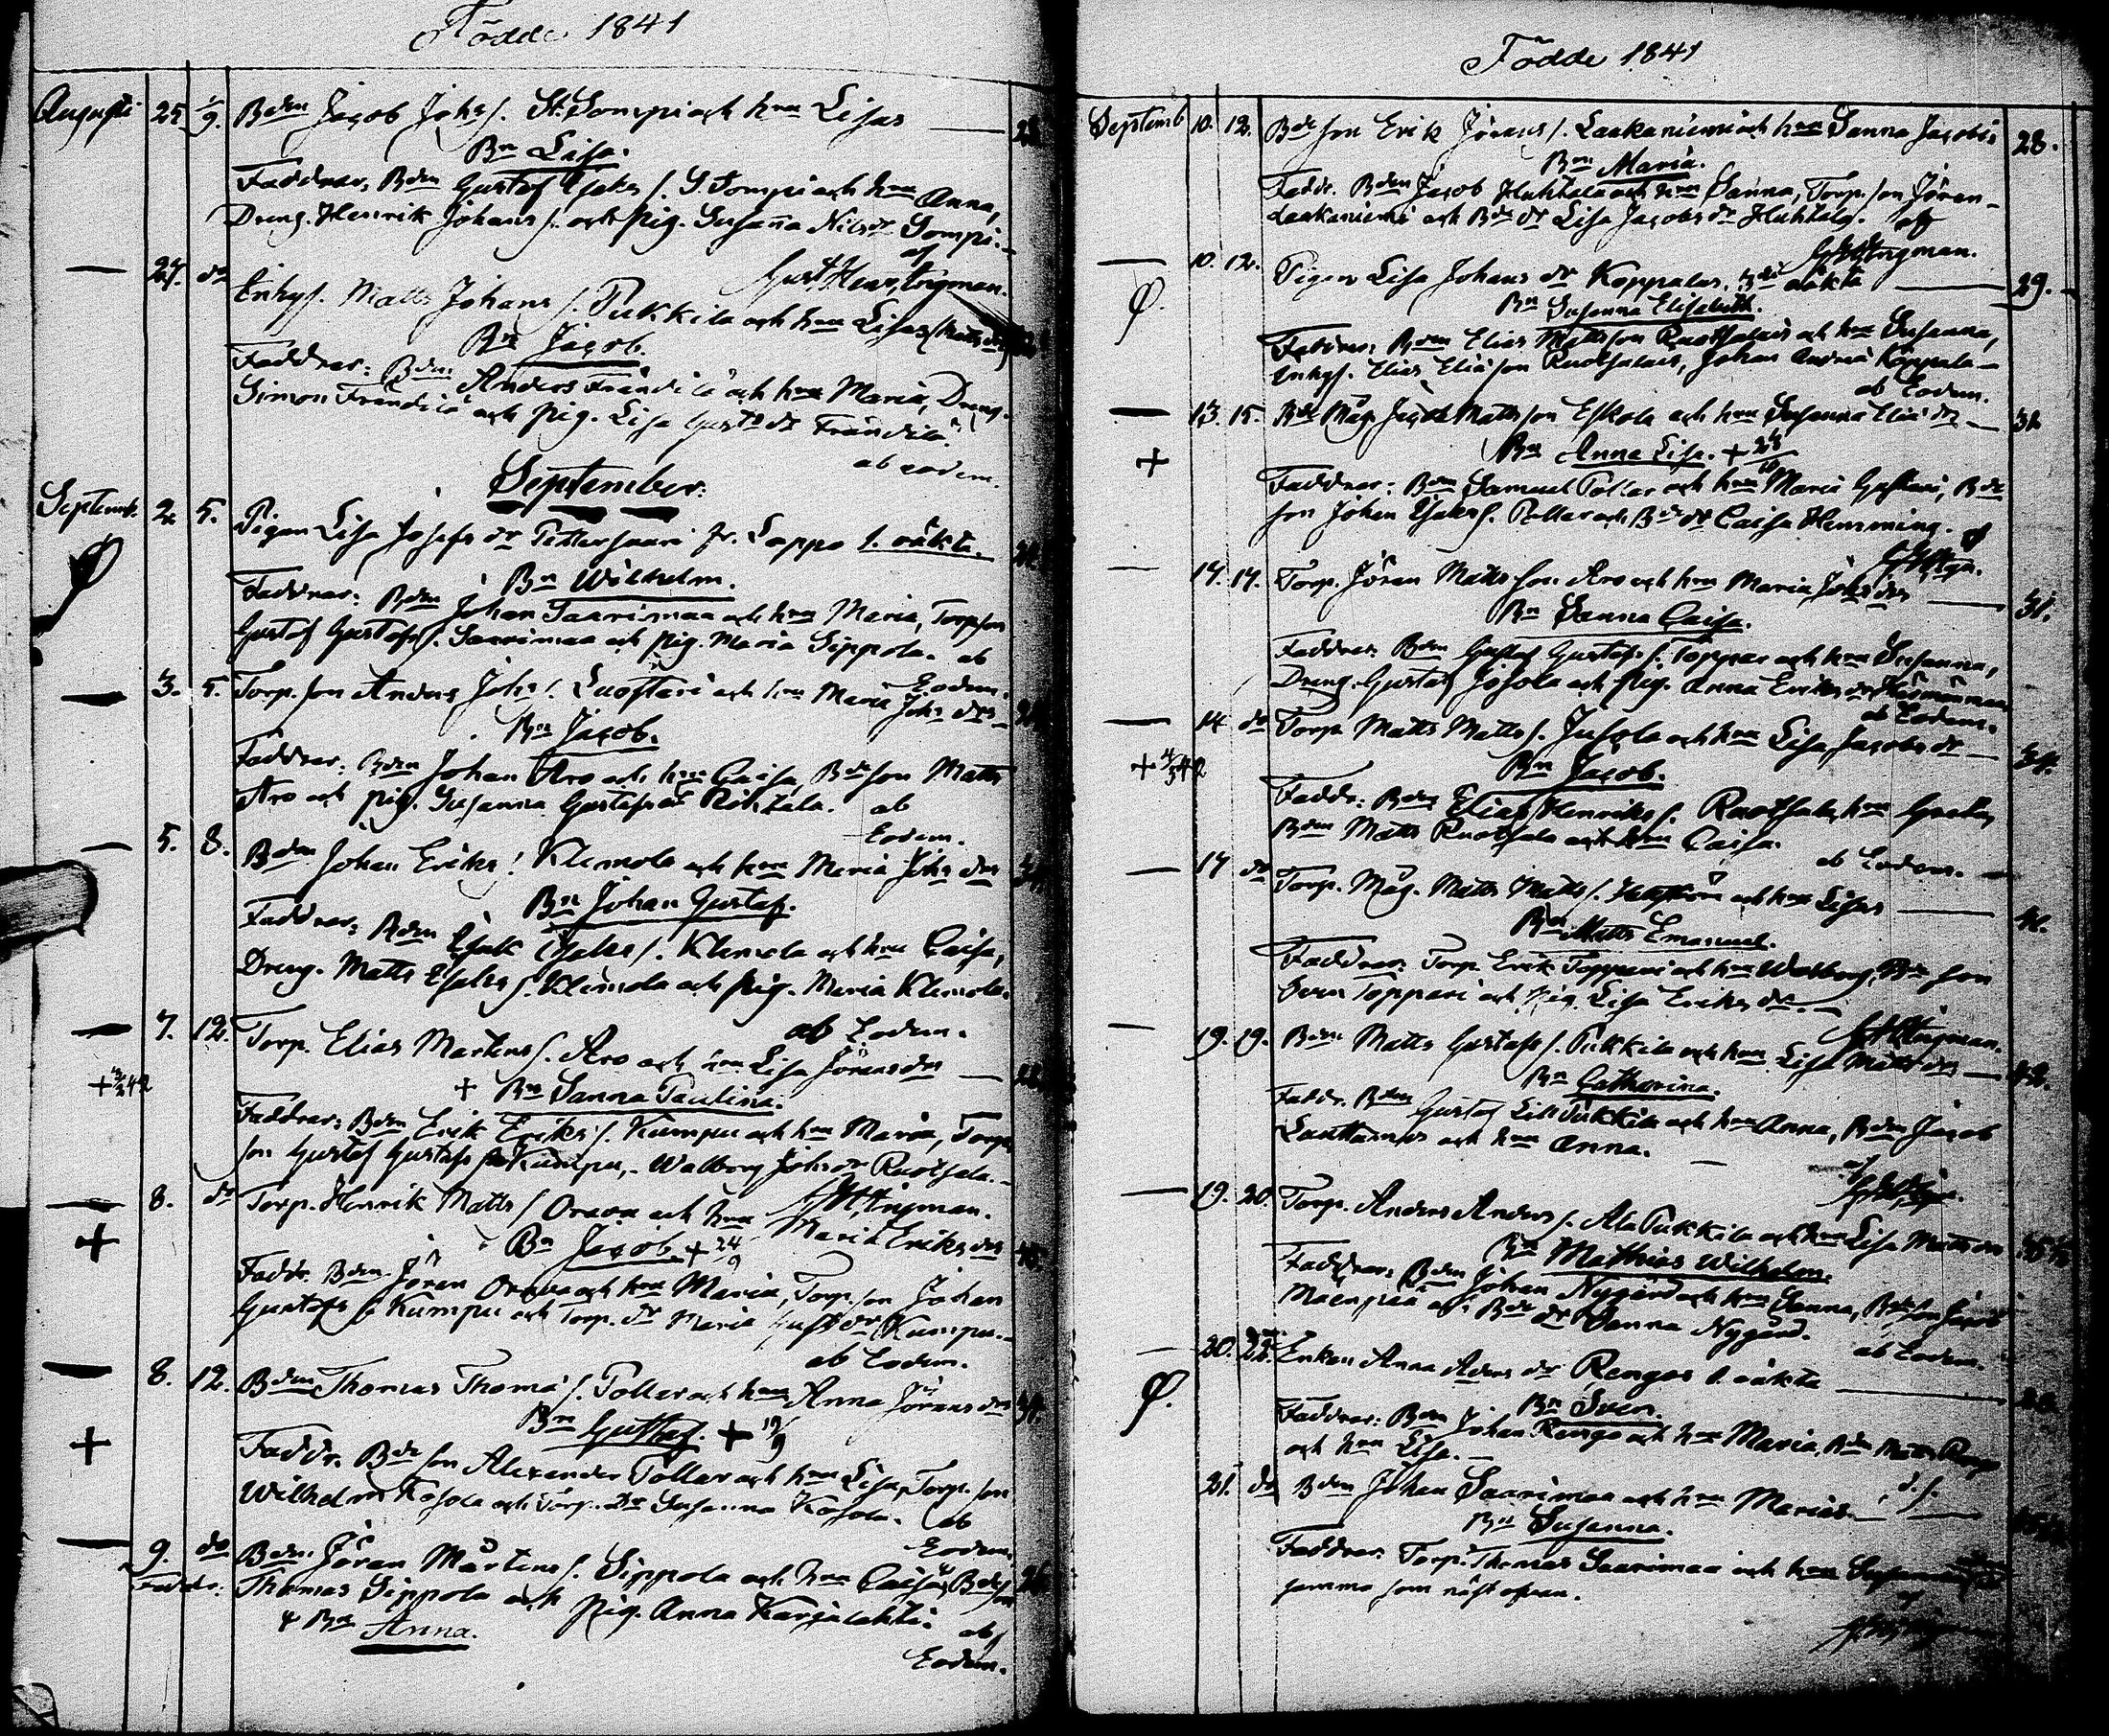 Födde 1841
Augusti 25 1/9. Bdn Jacob Johs s. St. Sompi och hru Lisas
Bn Lisa.
Faddrar: Bdn Gustaf Isaks s. S. Sompi och hru Anna,
Dreng. Henrik Johans s. och Pig. Susanna Nilsdr Sompi.
af
Gust Henr Ingman.
27. do Inhys. Matts Johans s. Pukkila och hru Lisas
Bn Jacob.
Faddrar: Bdn Anders Frändilä och hru Maria, Dreng.
Simon Frändilä och Pig. Lisa Gusts dr Frändilä
ab eodem.
September.
Septemb. 2. 5. Pigan Lisa Josefs dr Pettersaari fr. Lappo 1. oäkta.
Bn Wilhelm.
Faddrar: Bdn Johan Saarimaa och hru Maria, Torpson
Gustaf Gustafs s. Saarimaa och Pig. Maria Sippola. ab
Eodem.
3. 5. Torp. son Anders Johs s. Luoftari och hru Maria Johs drs
Bn Jacob.
Faddrar: Bdn Johan Aro och hru Caisa, Bdeson Matts
Aro och Pig. Susanna Gustafsdr Rihtala. ab
Eodem.
5. 8. Bdn Johan Eriks s. Klemola och hru Maria Johs drs
Bn Johan Gustaf.
Faddrar: Bdn Isak Isaks s. Klemola och hru Caisa,
Dreng. Matts Isaks s. Klemola och Pig. Maria Klemola.
ab Eodem.
7. 12. Torp. Elias Mårtens s. Aro och hru Lisa Jörans drs
+ Bn Sanna Paulina.
Faddrar: Bdn Erik Eriks s. Kumpu och hru Maria, Torp.
son Gustaf Gustafs s. Kumpu, Walborg Johs dr Ruotsala.
GHIngman.
8. do Torp. Henrik Matts s. Orava och hru Maria Eriks drs
Bn Jacob. + 24/9
Faddr. Bdn Jören Orava och hru Maria, Torp. son Johan
Gustafs s. Kumpu och Torp. dr Maria Gustdr Kumpu.
ab Eodem.
8. 12. Bdn Thomas Thomæ s. Pollar och hru Anna Jörans drs
Bn Gustaf. + 19/9
Faddr. Bde son Alexander Pollar och hru Lisa, Torp. son
Wilhelm Kosola och Torp. dr Susanna Kosola. ab
Eodem.
9. do Bdn Jören Mårtens s. Sippola och hru Caisas
Faddr. Thomas Sippola och Pig. Anna Karjalahti. ab
Bn Anna.
Eodem.
Födde 1841
Septemb 10. 12. Bde son Erik Jörans s. Laakaniemi och hru Sanna Jacobs 28.
Bn Maria.
Faddr. Bdn Jacob Huhtala och hru Sanna, Torp. son Jören
Laakaniemi och Bde dr Lisa Jacobs dr Huhtala. af
GHIngman.
10. 12. Pigan Lisa Johans dr Koppalas, 3dje oäkta 29.
Bn Susanna Elisabeth.
Faddrar: Bdn Elias Mattsson Ruotsalais och hru Susanna,
Inhys. Elias Eliæson Ruotsalais, Johan Andreæ Koppala
ab Eodem.
13. 15. Bde Måg Jacob Mattsson Eskola och hru Susanna Eliæ drs
Bn Anna Lisa. + 24/10
Faddrar: Bdn Samuel Pollar och hru Maria Gustavi, Bde
son Johan Isaks s. Pollar och Bde dr Caisa Hemming. af
17. 17. Torp. Jören Mattsson Aro och hru Maria Johs drs 31.
Bn Sanna Caisa.
Faddrar: Bdn Gustaf Gustafs s. Toppar och hru Susanna,
Dreng. Gustaf Jossola och Pig. Anna Eriks dr
ab Eodem.
14 do Torp. Matts Matts s. Jussola och hru Lisa Jacobs dr
Bn Jacob.
Faddr: Bdn Elias Henriks s. Ruotsala, hru Greta,
Bdn Matts Ruotsala och hru Caisa.
ab Eodem.
17 do Torp. Måg. Matts Matts s. och hru Lisas
Bn Matts Emanuel.
Faddrar: Torp. Erik Toppari och hru Walborg, Bde son
Sven Toppari och Pig. Lisa Eriks dr.
GHIngman.
19. 19. Bdn Matts Gustafs s. Pukkila och hru Lisa Matts drs 42.
Bn Catharina.
Faddr. Bdn Gustaf Lill Pukkila och hru Anna, Bdn Jacob
Lauttamus och hru Anna.
19. 20. Torp. Anders Anders s. Ala Pukkila och hru Lisa Matts drs
Bn Mathias Wilhelm.
Faddrar: Bdn Johan Nygård och hru Sanna, Bdeson Jacob
Mäenpää och Bde dr Sanna Nygård.
ab Eodem.
20. 22. Enkan Anna Aderns dr Rengos 1. oäkta
Bn Sven.
Faddrar: Bdn Johan Rengo och hru Maria, Bdn Matts Rengo
och hru Lisa. d. s.
21. do Bdn Johan Saarimaa och hru Marias
Bn Susanna.
Faddrar: Torp. Thomas Saarimaa och hru Susanna
samma som näst ofvan.